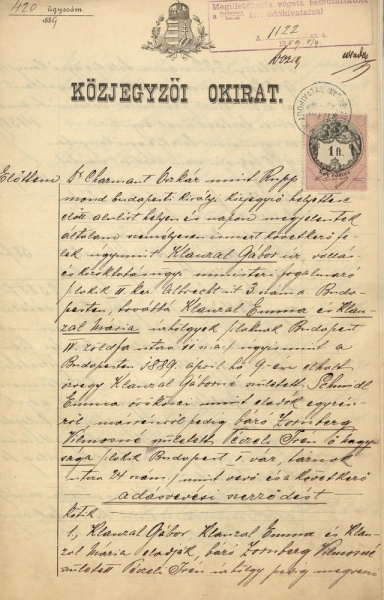 420 ügyszám
1889
Megilletékezés végett bemutattatott
adóhivatalnál
A 1122
1889
KÖZJEGYZŐI OKIRAT.
1 ft.
Előttem Dr Charmant Oszkár mint Rupp Zsig-
mond budapesti királyi közjegyző helyettese
előtt alulírt helyen és napon megjelentek
általam személyesen ismert következő fe-
lek úgymint Klauzal Gábor úr, vallás
és közoktatásügyi ministeri fogalmazó
/: lakik II. ker. Albrecht út 3 szám a Buda-
pesten, továbbá Klauzal Emma és Klau-
zal Mária úrhölgyek /: laknak Budapest
IV. zöldfa utca /: ugyismint a
Budapesten 1889 április hó 9-én elhalt
özvegy Klauzal Gáborné született Schmidl
Emma örökösei mint eladók egyrész-
ről, másrészről pedig báró Zornberg
Vilmosné született Péczeli Irén ő nagy-
sága /: lakik Budapest I. vár, tárnok
utca 24 szám :/ mint vevő és a következő
adásvevési szerződést
kötik
1, Klauzal Gábor, Klauzal Emma és Klau-
zal Mária eladják, báró Zornberg Vilmosné
született Péczeli Irén úrhölgy pedig megveszi